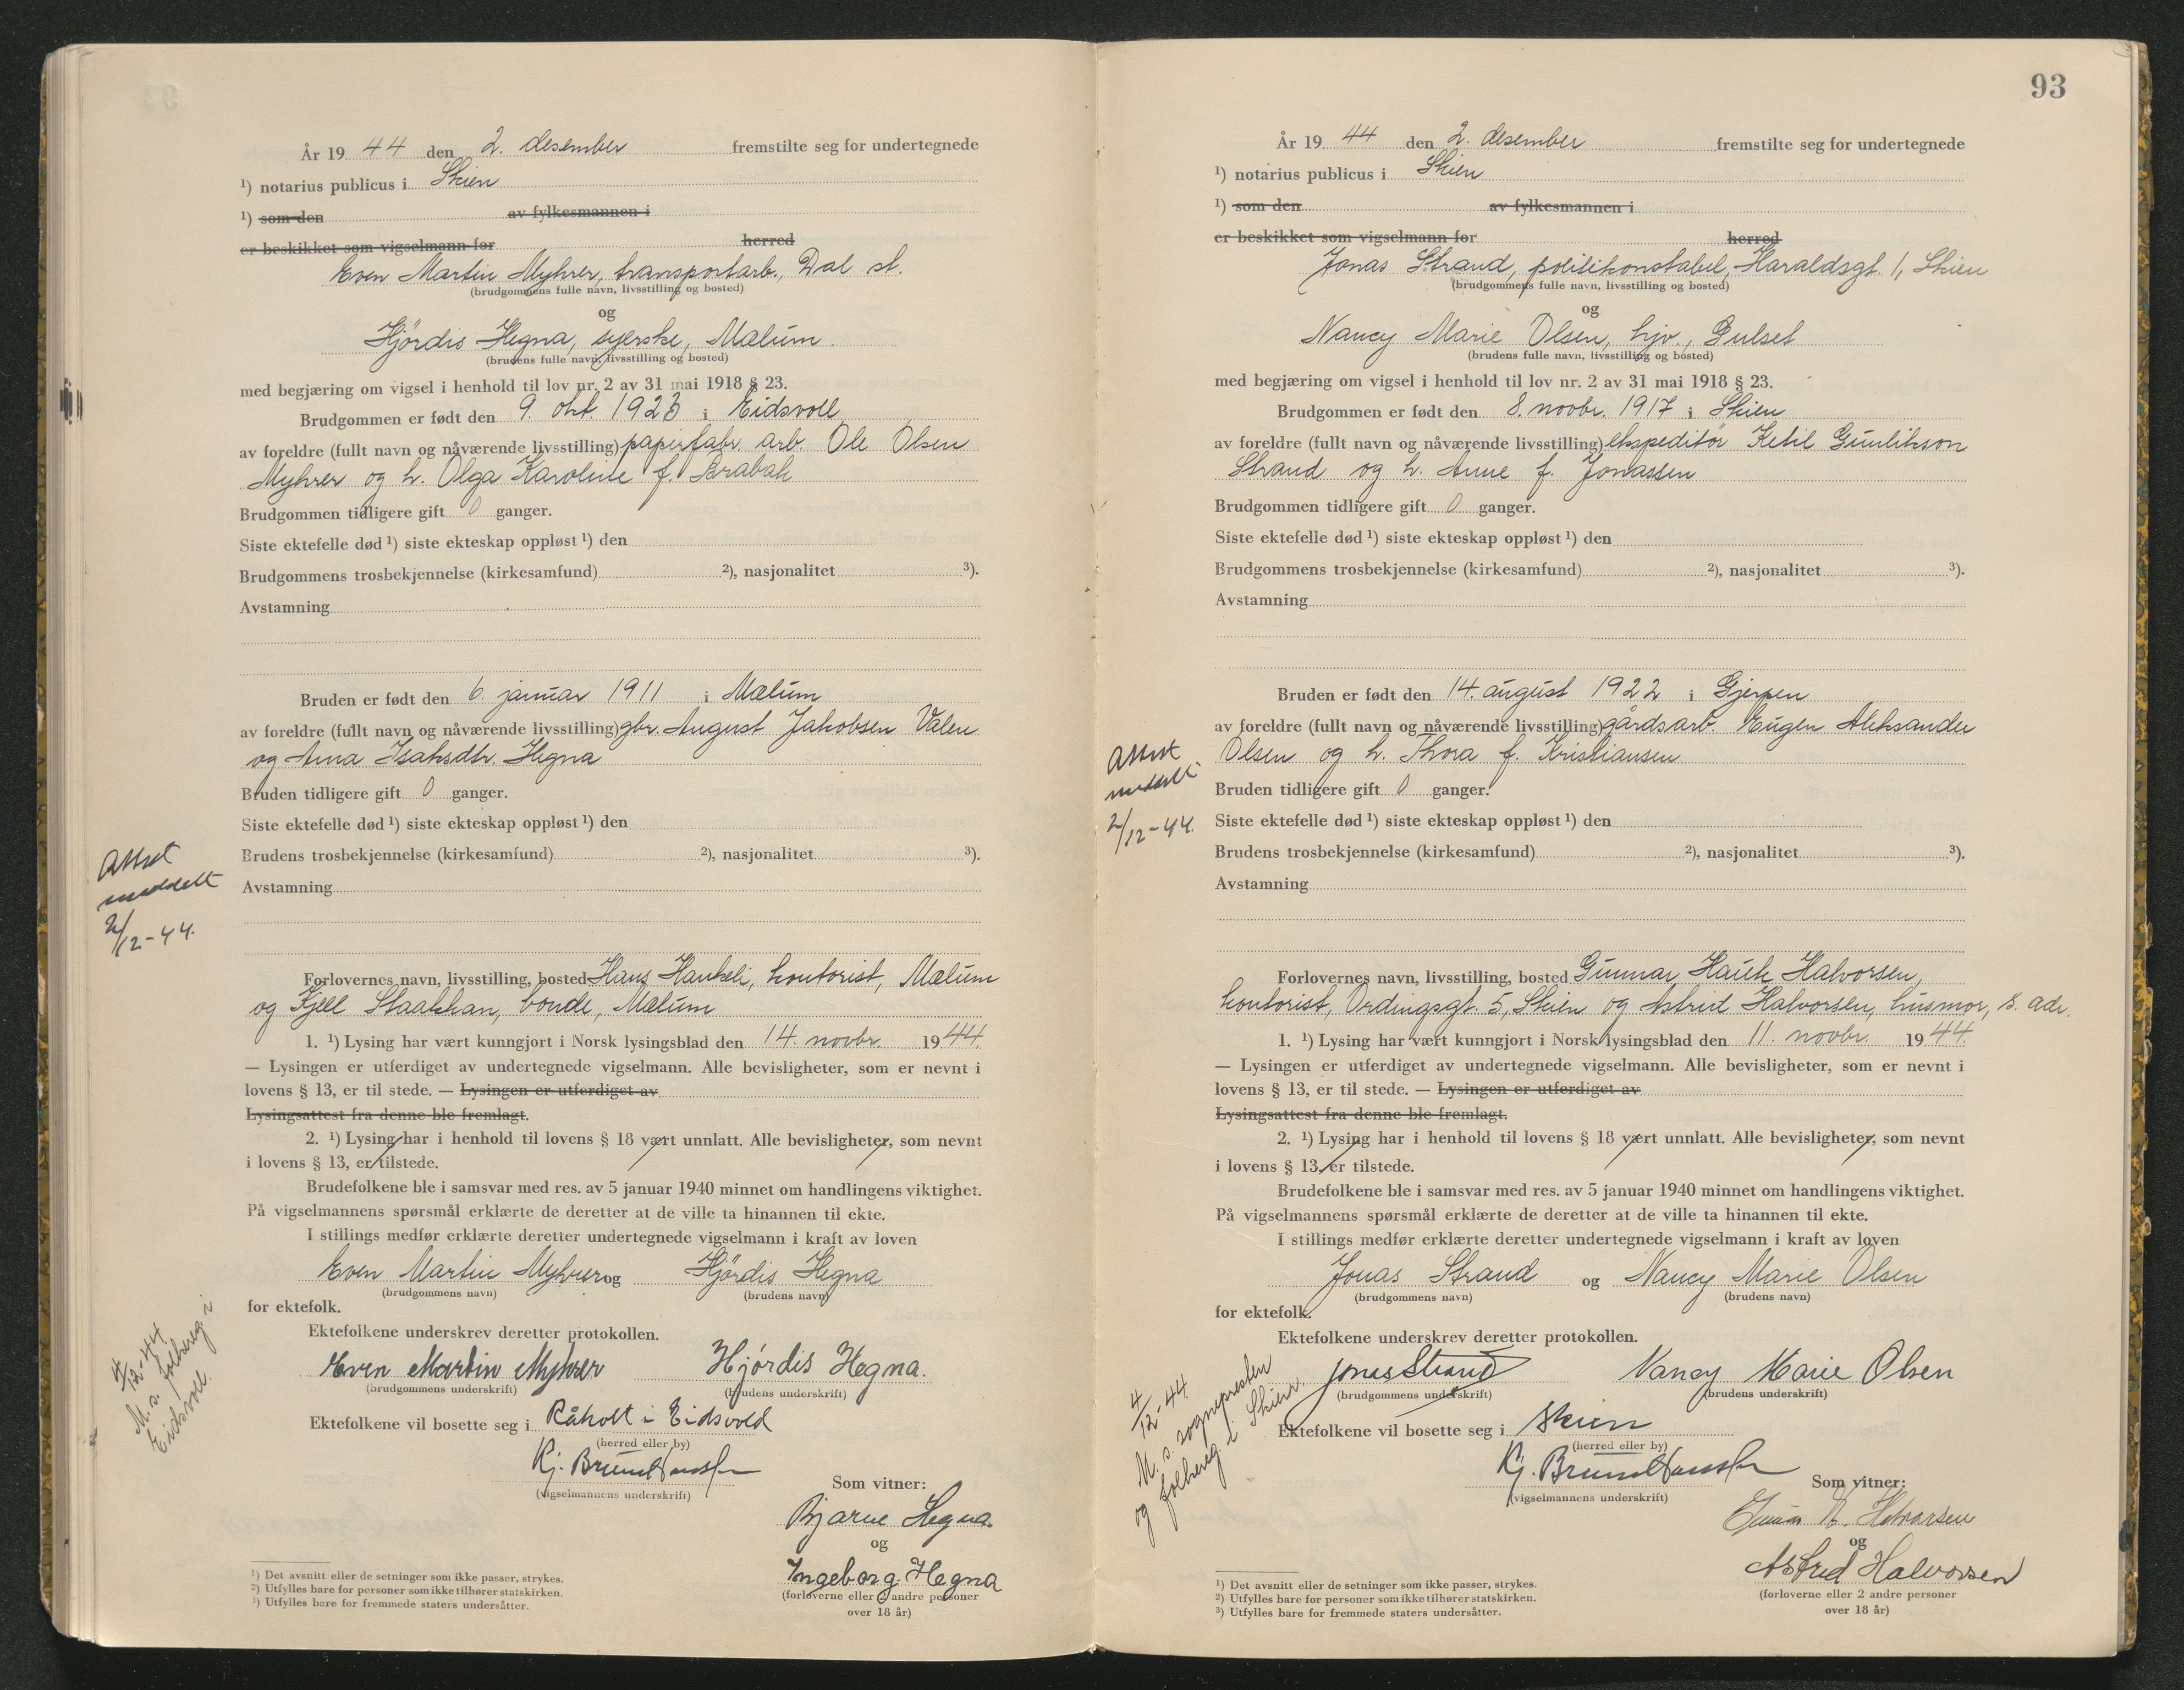 År 19 44 den 2. desember fremstilte seg for undertegnede
¹) notarius publicus i Skien
¹) som den av fylkesmannen i
er beskikket som vigselmann for herred
Even Martin Myhrer, transportarb., Dal st.
(brudgommens fulle navn, livsstilling og bosted)
og
Hjördis Hegna, syerske, Mælum.
(brudens fulle navn, livsstilling og bosted)
med begjæring om vigsel i henhold til lov nr. 2 av 31 mai 1918 § 23.
Brudgommen er født den 9. okt. 1923 i Eidsvoll
av foreldre (fullt navn og nåværende livsstilling) papirfabr. arb. Ole Olsen
Myhrer og h. Olga Karoline f. Brabak
Brudgommen tidligere gift 0 ganger.
Siste ektefelle død ¹) siste ekteskap oppløst ¹) den
Brudgommens trosbekjennelse (kirkesamfund) ²), nasjonalitet ³).
Avstamning
Bruden er født den 6. januar 1911 i Mælum
av foreldre (fullt navn og nåværende livsstilling) gbr. August Jakobsen Valen
og Anna Isaksdtr. Hegna
Bruden tidligere gift 0 ganger.
Siste ektefelle død ¹) siste ekteskap oppløst ¹) den
Brudens trosbekjennelse (kirkesamfund) ²), nasjonalitet ³).
Avstamning
Attest
meddelt
2/12-44.
Forlovernes navn, livsstilling, bosted Hans Hankeli, kontorist, Mælum
og Kjell Staakkan, bonde, Mælum
1. ¹) Lysing har vært kunngjort i Norsk lysingsblad den 14. novbr. 1944.
— Lysingen er utferdiget av undertegnede vigselmann. Alle bevisligheter, som er nevnt i
lovens § 13, er til stede. — Lysingen er utferdiget av
Lysingsattest fra denne ble fremlagt.
2. ¹) Lysing har i henhold til lovens § 18 vært unnlatt. Alle bevisligheter, som nevnt
i lovens § 13, er tilstede.
Brudefolkene ble i samsvar med res. av 5 januar 1940 minnet om handlingens viktighet.
På vigselmannens spørsmål erklærte de deretter at de ville ta hinannen til ekte.
I stillings medfør erklærte deretter undertegnede vigselmann i kraft av loven
Even Martin Myhrer og Hjördis Hegna
(brudgommens navn) (brudens navn)
for ektefolk.
Ektefolkene underskrev deretter protokollen.
Even Martin Myhrer Hjördis Hegna.
(brudgommens underskrift) (brudens underskrift)
Ektefolkene vil bosette seg i Råholt i Eidsvold
(herred eller by)
(vigselmannens underskrift)
4/12-44
M. s. folkereg. i
Eidsvoll.
Som vitner:
Bjarne Hegna.
og
Ingeborg Hegna
(forloverne eller 2 andre personer
over 18 år)
¹) Det avsnitt eller de setninger som ikke passer, strykes.
²) Utfylles bare for personer som ikke tilhører statskirken.
³) Utfylles bare for fremmede staters undersåtter.
93
År 19 44 den 2. desember fremstilte seg for undertegnede
¹) notarius publicus i Skien
¹) som den av fylkesmannen i
er beskikket som vigselmann for herred
Jonas Strand, politikonstabel, Haraldsgt. 1, Skien
(brudgommens fulle navn, livsstilling og bosted)
og
Nancy Marie Olsen, hjv., Gulset
(brudens fulle navn, livsstilling og bosted)
med begjæring om vigsel i henhold til lov nr. 2 av 31 mai 1918 § 23.
Brudgommen er født den 8. novbr. 1917 i Skien
av foreldre (fullt navn og nåværende livsstilling) ekspeditør Ketil Gunlikson
Strand og h. Anne f. Jonassen
Brudgommen tidligere gift 0 ganger.
Siste ektefelle død ¹) siste ekteskap oppløst ¹) den
Brudgommens trosbekjennelse (kirkesamfund) ²), nasjonalitet ³).
Avstamning
Bruden er født den 14. august 1922 i Gjerpen
av foreldre (fullt navn og nåværende livsstilling) gårdsarb. Eugen Aleksander
Olsen og h. Thora f. Kristiansen
Attest
meddelt
2/12-44.
Bruden tidligere gift 0 ganger.
Siste ektefelle død ¹) siste ekteskap oppløst ¹) den
Brudens trosbekjennelse (kirkesamfund) ²), nasjonalitet ³).
Avstamning
Forlovernes navn, livsstilling, bosted Gunnar Hauk Halvorsen,
kontorist, Ordingsgt. 5, Skien og Astrid Halvorsen, husmor, s. adr.
1. ¹) Lysing har vært kunngjort i Norsk lysingsblad den 11. novbr. 1944.
— Lysingen er utferdiget av undertegnede vigselmann. Alle bevisligheter, som er nevnt i
lovens § 13, er til stede. — Lysingen er utferdiget av
Lysingsattest fra denne ble fremlagt.
2. ¹) Lysing har i henhold til lovens § 18 vært unnlatt. Alle bevisligheter, som nevnt
i lovens § 13, er tilstede.
Brudefolkene ble i samsvar med res. av 5 januar 1940 minnet om handlingens viktighet.
På vigselmannens spørsmål erklærte de deretter at de ville ta hinannen til ekte.
I stillings medfør erklærte deretter undertegnede vigselmann i kraft av loven
Jonas Strand og Nancy Marie Olsen
(brudgommens navn) (brudens navn)
for ektefolk.
Ektefolkene underskrev deretter protokollen.
Jonas Strand Nancy Marie Olsen
(brudgommens underskrift) (brudens underskrift)
Ektefolkene vil bosette seg i Skien
(herred eller by)
(vigselmannens underskrift)
4/12-44
M. s. sognepresten
og folkereg. i Skien.
Som vitner:
Gunnar H. Halvorsen
og
Astrid Halvorsen
(forloverne eller 2 andre personer
over 18 år)
¹) Det avsnitt eller de setninger som ikke passer, strykes.
²) Utfylles bare for personer som ikke tilhører statskirken.
³) Utfylles bare for fremmede staters undersåtter.